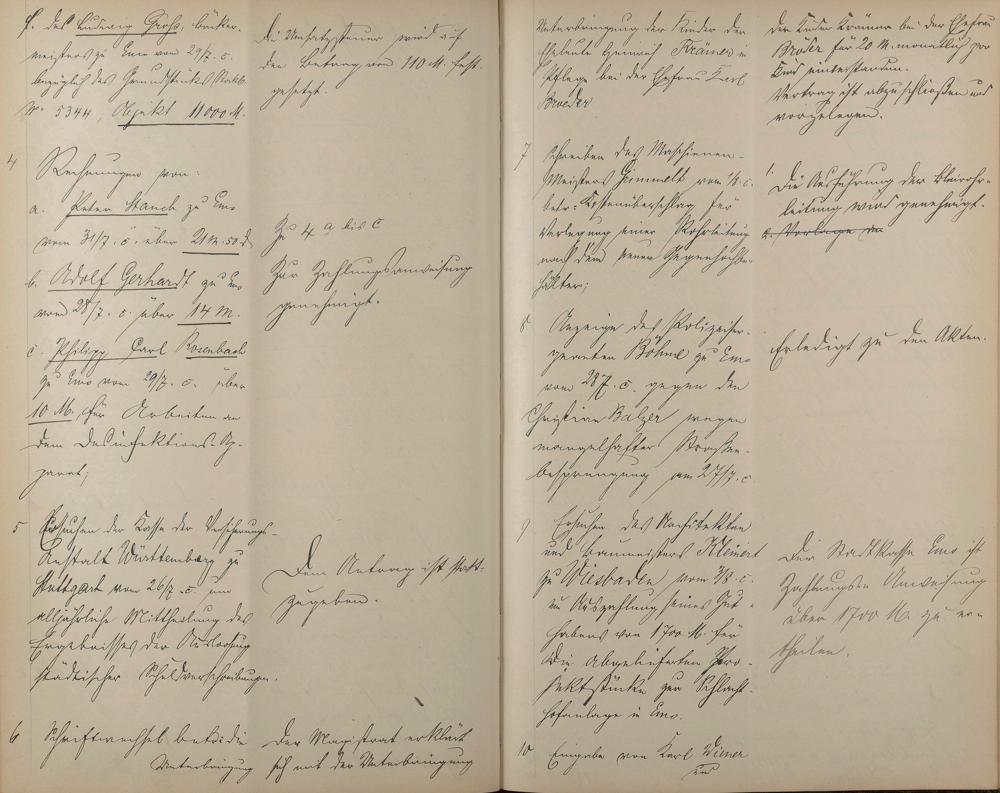 f. des Ludwig Groß, Bäcker-
meisters zu Ems vom 29/7. c.
bezüglich des Grundstückes Stockb.
No 5344, Objekt 11000 M.
Die Umsatzsteuer wird auf
den Betrag von 110 M. fest-
gesetzt.
4
Rechnungen von:
a. Peter Stauch zu Ems
vom 31/7. c. über 21 M. 50 d
b. Adolf Gerhardt zu Ems
vom 28/7. c. über 14 M.
c. Philipp Carl Rosenbach
zu Ems vom 29/7. c. über
10 M. für Arbeiten an
dem Desinfektions-Ap-
parat;
Zu 4 a bis c
Zur Zahlungsanweisung
genehmigt.
5
Ersuchen der Kasse der Versicherungs-
Anstalt Württemberg zu
Stuttgart vom 26/7. c. um
alljährliche Mittheilung des
Ergebnisses der Ausloosung
städtischer Schuldverschreibungen.
Dem Antrag ist statt-
zugeben.
6
Schriftwechsel betr: die
Unterbringung
Der Magistrat erklärt
sich mit der Unterbringung
Unterbringung der Kinder der
Eheleute Heinrich Krämer in
Pflege bei der Ehefrau Karl
Broeder
der Kinder Krämer bei der Ehefrau
Broder für 20 M. monatlich pro
Kind einverstanden.
Vertrag ist abzuschließen und
vorzulegen.
7
Schreiben des Maschinen-
Meisters Gimmelt vom 1/8. c.
betr: Kostenüberschlag für
Verlegung einer Rohrleitung
nach dem neuen Gegenhochbe-
hälter;
1. Die Ausführung der Bleirohr-
leitung wird genehmigt.
2. Vorlage
8
Anzeige des Polizeiser-
geanten Böhme zu Ems
vom 28/7. c. gegen den
Christian Balzer wegen
mangelhafter Straßen-
besprengung am 27/7. c
Erledigt zu den Akten.
9
Ersuchen des Architekten
und Baumeisters Kleinert
zu Wiesbaden, vom 3/8. c.
um Auszahlung seines Gut-
habens von 1700 M. für
die abgelieferten Pro-
jektstücke zur Schlacht-
hofanlage in Ems.
Der Stadtkasse Ems ist
Zahlungs Anweisung
über 1700 M. zu er-
theilen.
10
Eingabe von Karl Wiener
und